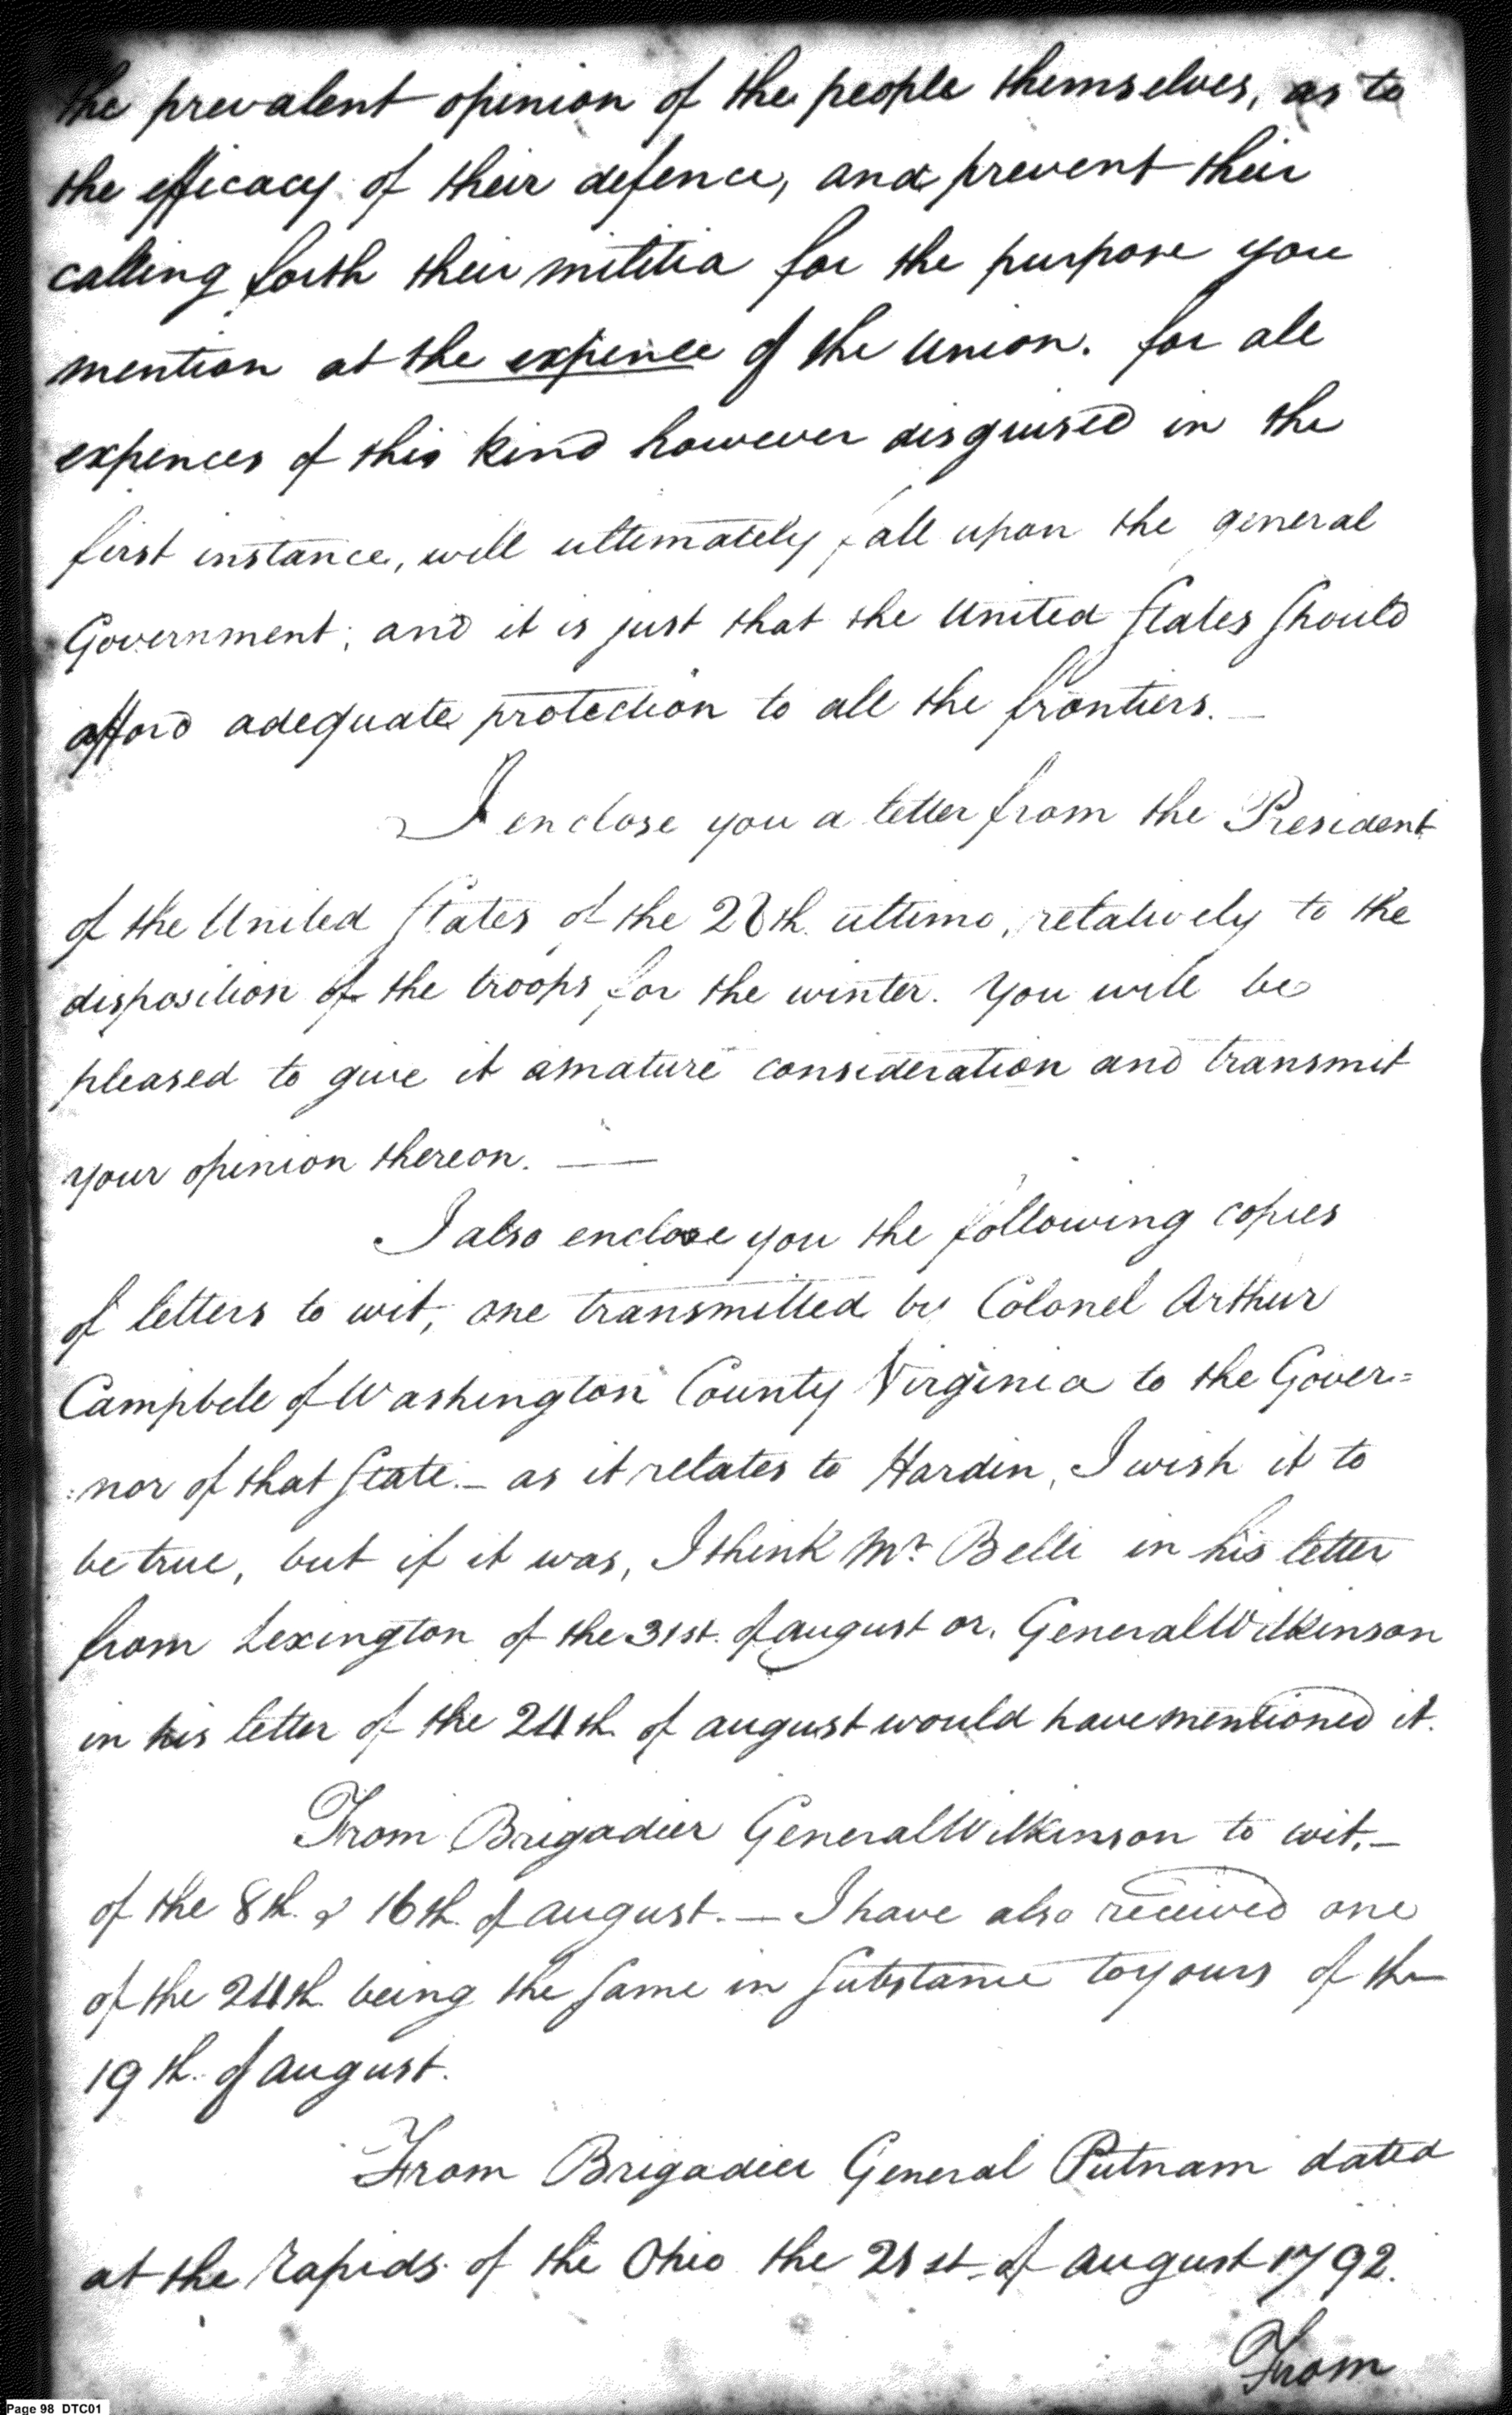 the prevalent opinion of the people themselves, as to
the efficacy of their defence, and prevent their
calling forth their militia for the purpose you
mention at the expence of the union. for all
expences of this kind however disguised in the
first instance, will ultimately fall upon the general
Government; and it is just that the United States Should
afford adequate protection to all the frontiers. —
I enclose you a letter from the President
of the United States of the 28th. ultimo, relatively to the
disposition of the troops for the winter. You will be
pleased to give it a mature consideration and transmit
your opinion thereon. —
I also enclose you the following copies
of letters to wit, one transmitted by Colonel Arthur
Campbell of Washington County Virginia to the Gover=
=nor of that State. — as it relates to Hardin, I wish it to
be true, but if it was, I think Mr. Belli in his letter
from Lexington of the 31st. of august or, General Wilkinson
in his letter of the 24th. of august would have mentioned it.
From Brigadier General Wilkinson to wit. —
of the 8th. & 16th. of august. — I have also received one
of the 24th. being the same in Substance to yours of the
19th. of august.
From Brigadier General Putnam dated
at the rapids of the Ohio the 21st. of august 1792.
From
Page 98 DTC01